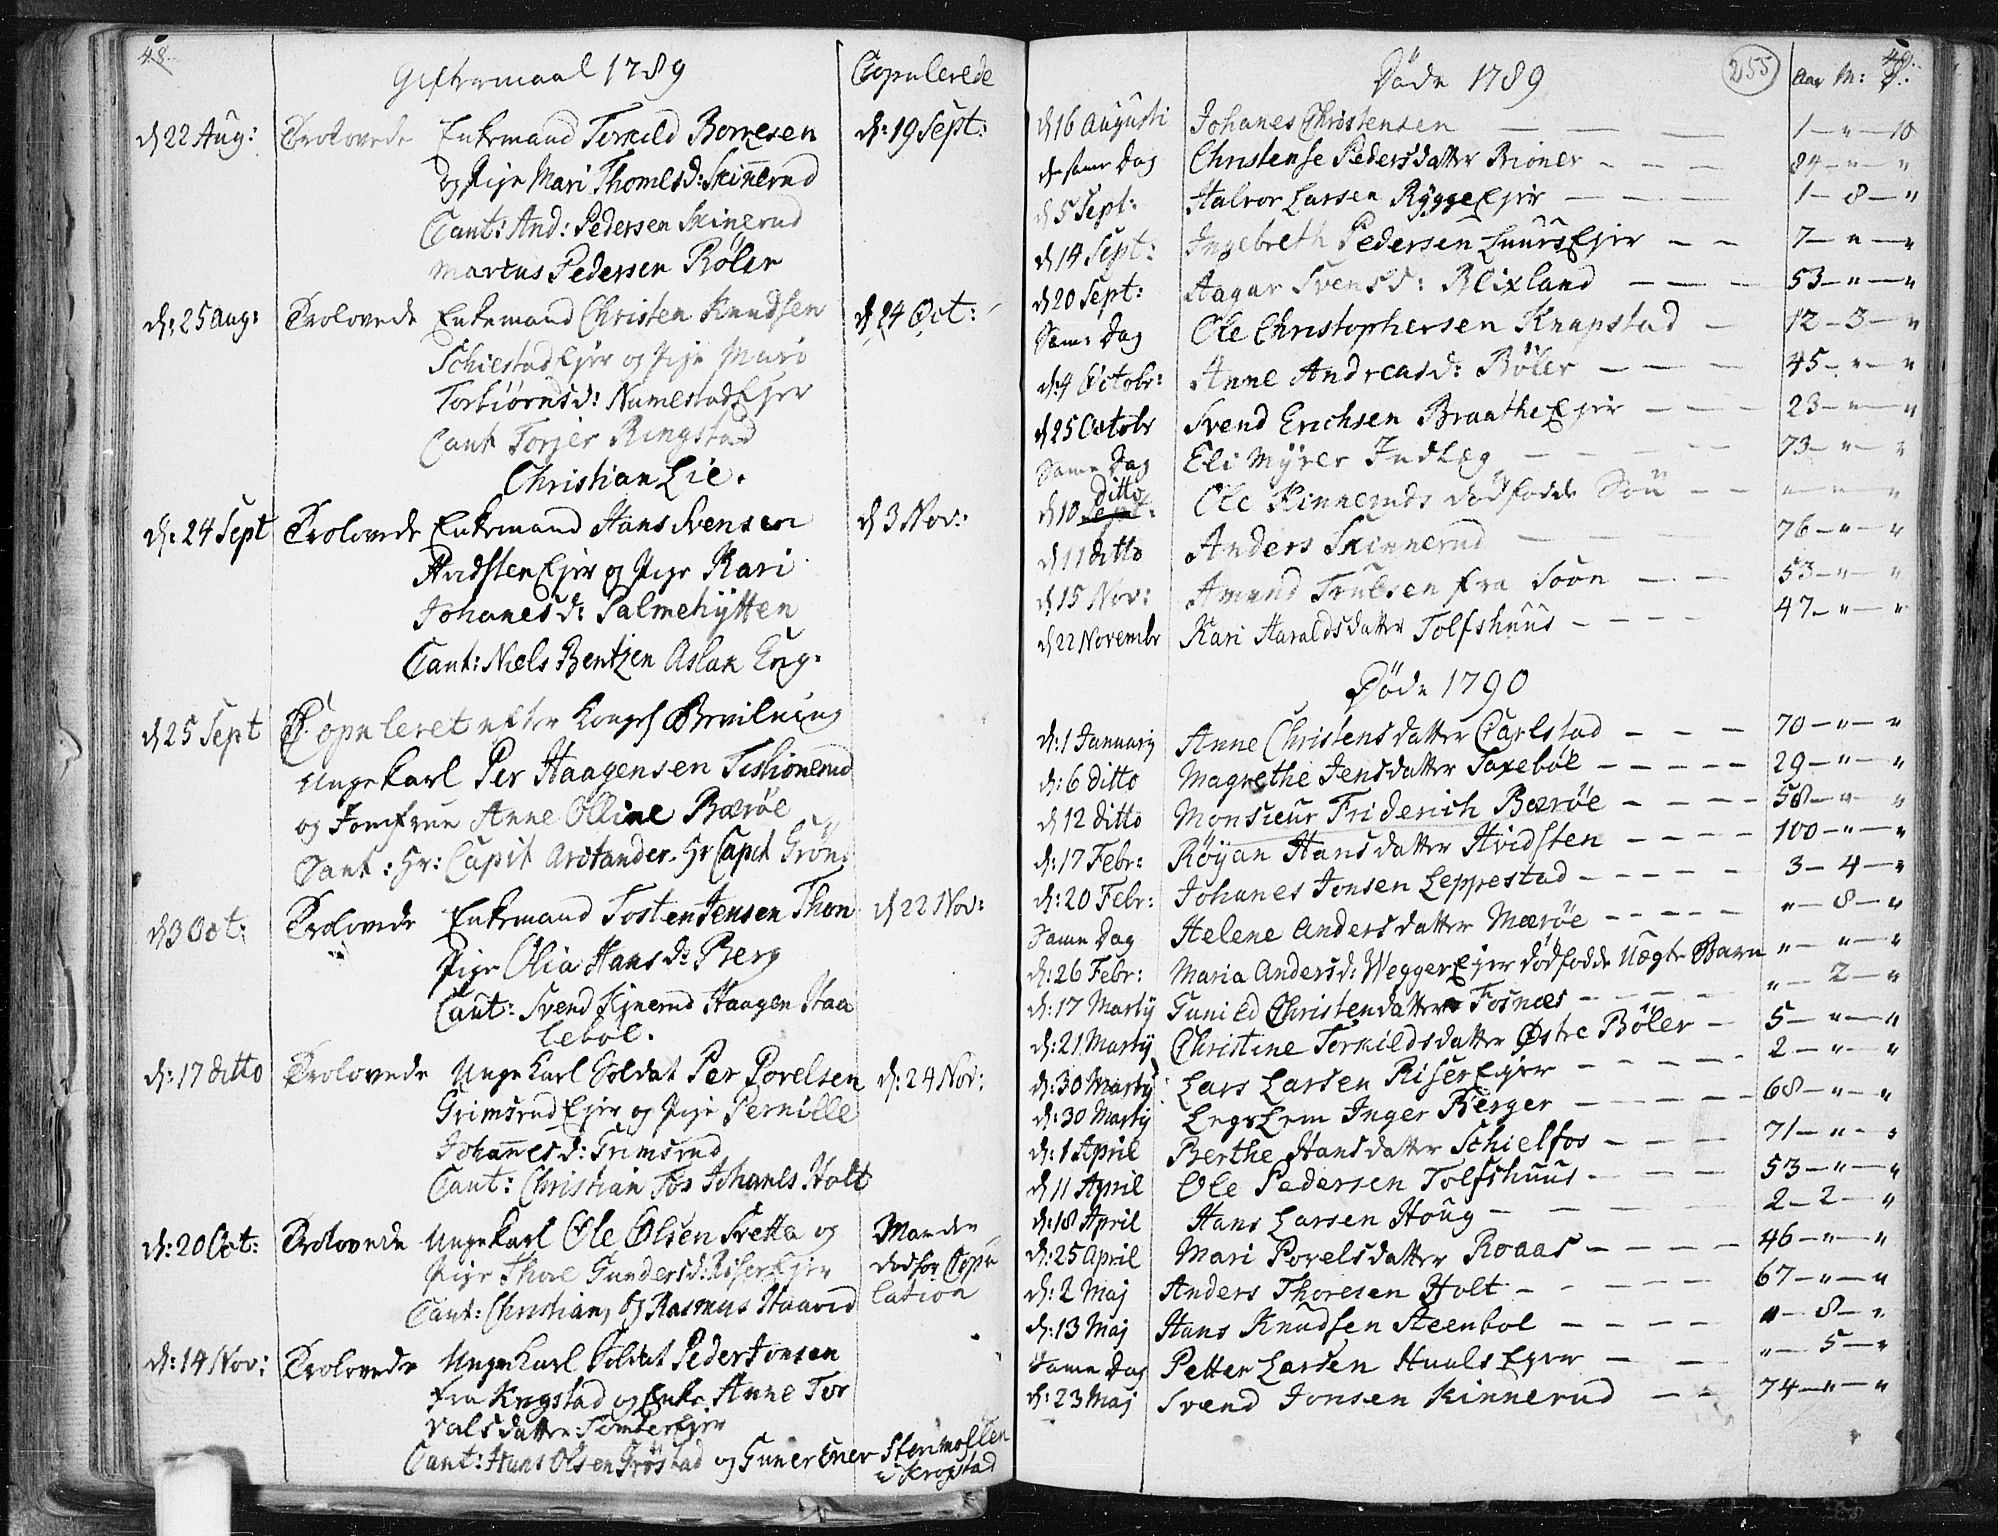 48.
Giftermaal 1789 Copulerede
d 22 Aug: Trolovede Enkemand Torkild Borresen d: 19 Sept:
og Pige Mari Thomesd: Skinnerud
Caut: And: Pedersen Skinerud
Martus Pedersen Bøler
d: 25 Aug: Trolovede Enkemand Christen Knudsen d 24 Oct:
Schiestad Ejer og Pige Mari
Torbiørnsd: Namestad Ejer
Caut Torjer Ringstad
Christian Lie.
d: 24 Sept Trolovede Enkemand Hans Svensen d 3 Nov:
Hvidsten Ejer og Pige Kari
Johanesd: Palmehytten
Caut: Niels Bentzen Aslak Eng.
d 25 Sept Copuleret efter Kongel Bevilning
Ungekarl Per Haagensen
og Jomfrue Anne Olline Bærøe
Caut: Hr: Capit Arstander. Hr Capit Grön:
d 3 Oct: Trolovede Enkemand Tosten Jensen Thon d 22 Nov:
Pige Olia Hansd: Berg
Caut: Svend Skinerud Haagen Haa
lebol.
d: 17 ditto Trolovede Unge Karl Soldat Per Povelsen d: 24 Nov:
Grimsrud Ejer og Pige Pernille
Johannesd: Grimsrud
Caut: Christian Fos Johanes Holt
d: 20 Oct: Trolovede Ungekarl Ole Olsen Sletta og Manden
Pige Thore Gundersd: Riser Ejer død for Copu
Caut: Christian, og Rasmus Haavid lation
d: 14 Nov: Trolovede Unge Karl Soldat Peder Jonsen
fra Krogstad og Enke Anne Tor
valsdatter Tomter Ejer
Caut: Hans Olsen Grøstad og Guner Ener Stenmollen
i Krogstad
Døde 1789 255 Aar M: D: 49.
d 16 Augusti Johanes Christensen — — — 1 — " — 10
den same Dag Christense Pedersdatter Brioner — — — 84 — " — "
d 5 Sept: Halvor Larsen Rygge Ejer — — — 1 — 8 — "
d 14 Sept: Ingebreth Pedersen Huurs Ejer — — 7 — " — "
d 20 Sept: Aagar Svensd: Blixland — — — 53 — " — "
Same Dag Ole Christophersen Knapstad — 12 — 3 — "
d: 4 Octobr: Anne Andreasd: Bøler — — — 45 — " — "
d 25 Octobr Svend Erichsen Braathe Ejer — — — 23 — " — "
Same Dag Eli Myrer Indlæg — — — 73 — " — "
d 10 ditto Ole Kinneruds dødfødde Søn — — " — " "
d 11 ditto Anders Skinnerud — — — 76 — " — "
d 15 Nov: Amund Trulsen fra Soon — — — 53 — " — "
d 22 Novembr Kari Haraldsdatter Tolfshuus — — — — 47 — " — "
Døde 1790
d: 1 Januarij Anne Christensdatter Carlstad — — — 70 — " — "
d: 6 ditto Magrethe Jensdatter Saxebøl — — — — — 29 — " — "
d 12 ditto Monsieur Friderich Bærøe — — — — 58 — " — "
d: 17 Febr: Røyan Hansdatter Hvidsten — — — — 100 — " — "
d: 20 Febr: Johanes Jonsen Leppestad — — — — — 3 — 4 — "
Same Dag Helene Andersdatter Mærøe — — — — — " — 8 — "
d: 26 Febr: Maria Andersd: Wegger Ejer dødfødde Uægte Barn " — " — "
d: 17 Martij Gunild Christendatter Fosnæs — — — — " — 2 — "
d: 21 Martij Christine Torkildsdatter Østre Bøler — 5 — " — "
d: 30 Martij Lars Larsen Riser Ejer — — — — 2 — " — "
d: 30 Martij Legs Lem Inger Berger — — — — — 68 — " — "
d: 1 April Berthe Hansdatter Schielfos — — — — 71 — " — "
d 11 April Ole Pedersen Tolfshuus — — — — 53 — " — "
d: 18 April Hans Larsen Houg — — — — — 2 — 2 — "
d: 25 April Mari Povelsdatter Roaas — — — — 46 — " — "
d: 2 Maj Anders Thoresen Holt — — — — 67 — " — "
d: 13 Maj Hans Knudsen Steenbøl — — — — " — 8 — "
Same Dag Petter Larsen Huals Ejer — — — " — 5 — "
d: 23 Maj Svend Jonsen Kinnerud — — 74 — " — "